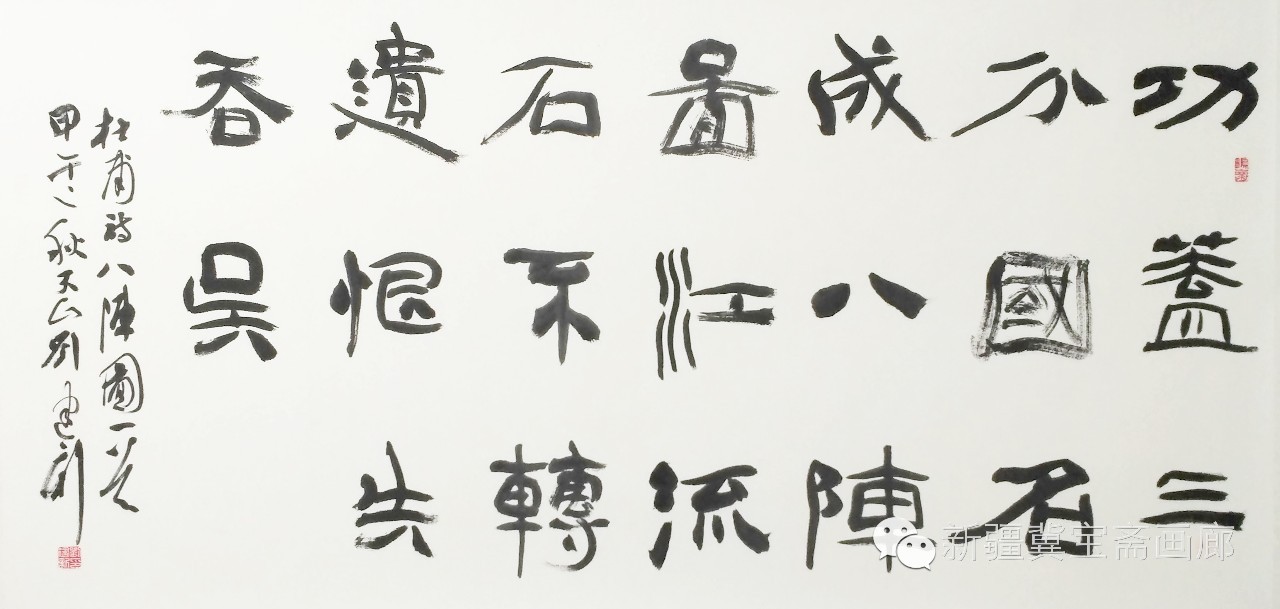 功蓋三
分國名
成八陣
圖江流
石不轉
遺恨失
吞吳
杜甫詩八陣圖一首
甲午之秋天山劉建新
新疆冀宝斋画廊